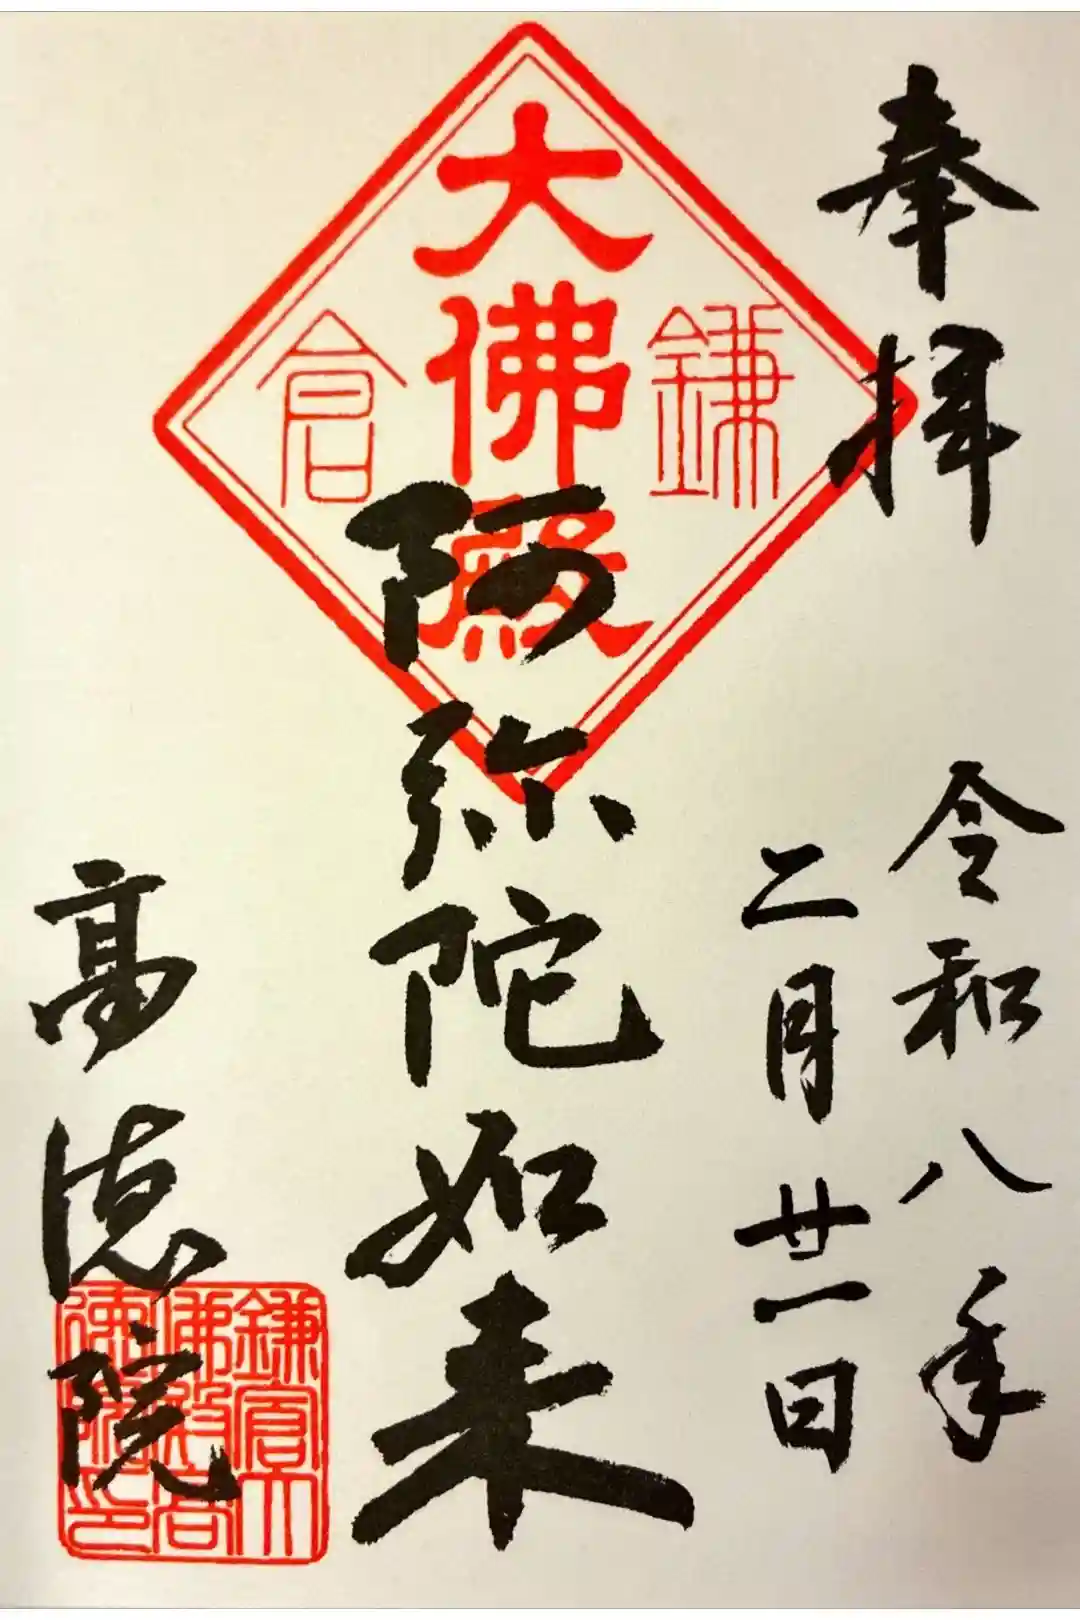 奉拝
令和八年
二月廿一日
鎌倉
大佛殿
阿弥陀如来
高徳院
鎌倉大
佛殿高
徳院印